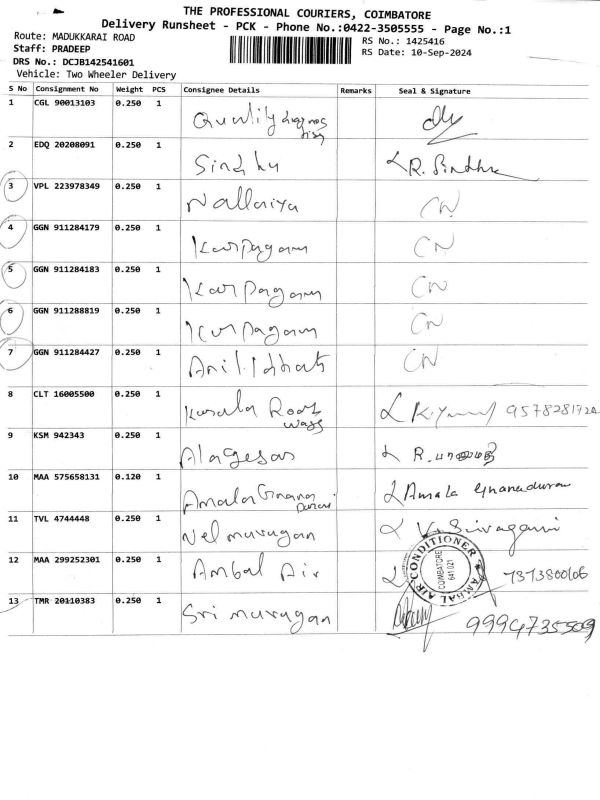 THE PROFESSIONAL COURIERS, COIMBATORE
Delivery Runsheet - PCK - Phone No.:0422-3505555 - Page No.:1
Route: MADUKKARAI ROAD
RS No.: 1425416
Staff: PRADEEP
RS Date: 10-Sep-2024
DRS No.: DCJB142541601
Vehicle: Two Wheeler Delivery
S No Consignment No Weight PCS Consignee Details Remarks Seal & Signature
1 CGL 90013103 0.250 1 Quality
2 EDQ 20208091 0.250 1 Sindhu R. Sindhu
3 VPL 223978349 0.250 1 Nallariya CN
4 GGN 911284179 0.250 1 Karpagam CN
5 GGN 911284183 0.250 1 Karpagam CN
6 GGN 911288819 0.250 1 Karpagam CN
7 GGN 911284427 0.250 1 Anil CN
8 CLT 16005500 0.250 1 Kerala Roof
ways
9 KSM 942343 0.250 1 Alagesan R.
10 MAA 575658131 0.120 1 Amala Gnana Amala Gnanadurai
11 TVL 4744448 0.250 1 Velmurugan
12 MAA 299252301 0.250 1 Ambal Air 7373800106
AMBAL AIR CONDITIONER
COIMBATORE
641 021
13 TMR 20110383 0.250 1 Sri murugan 9994735509